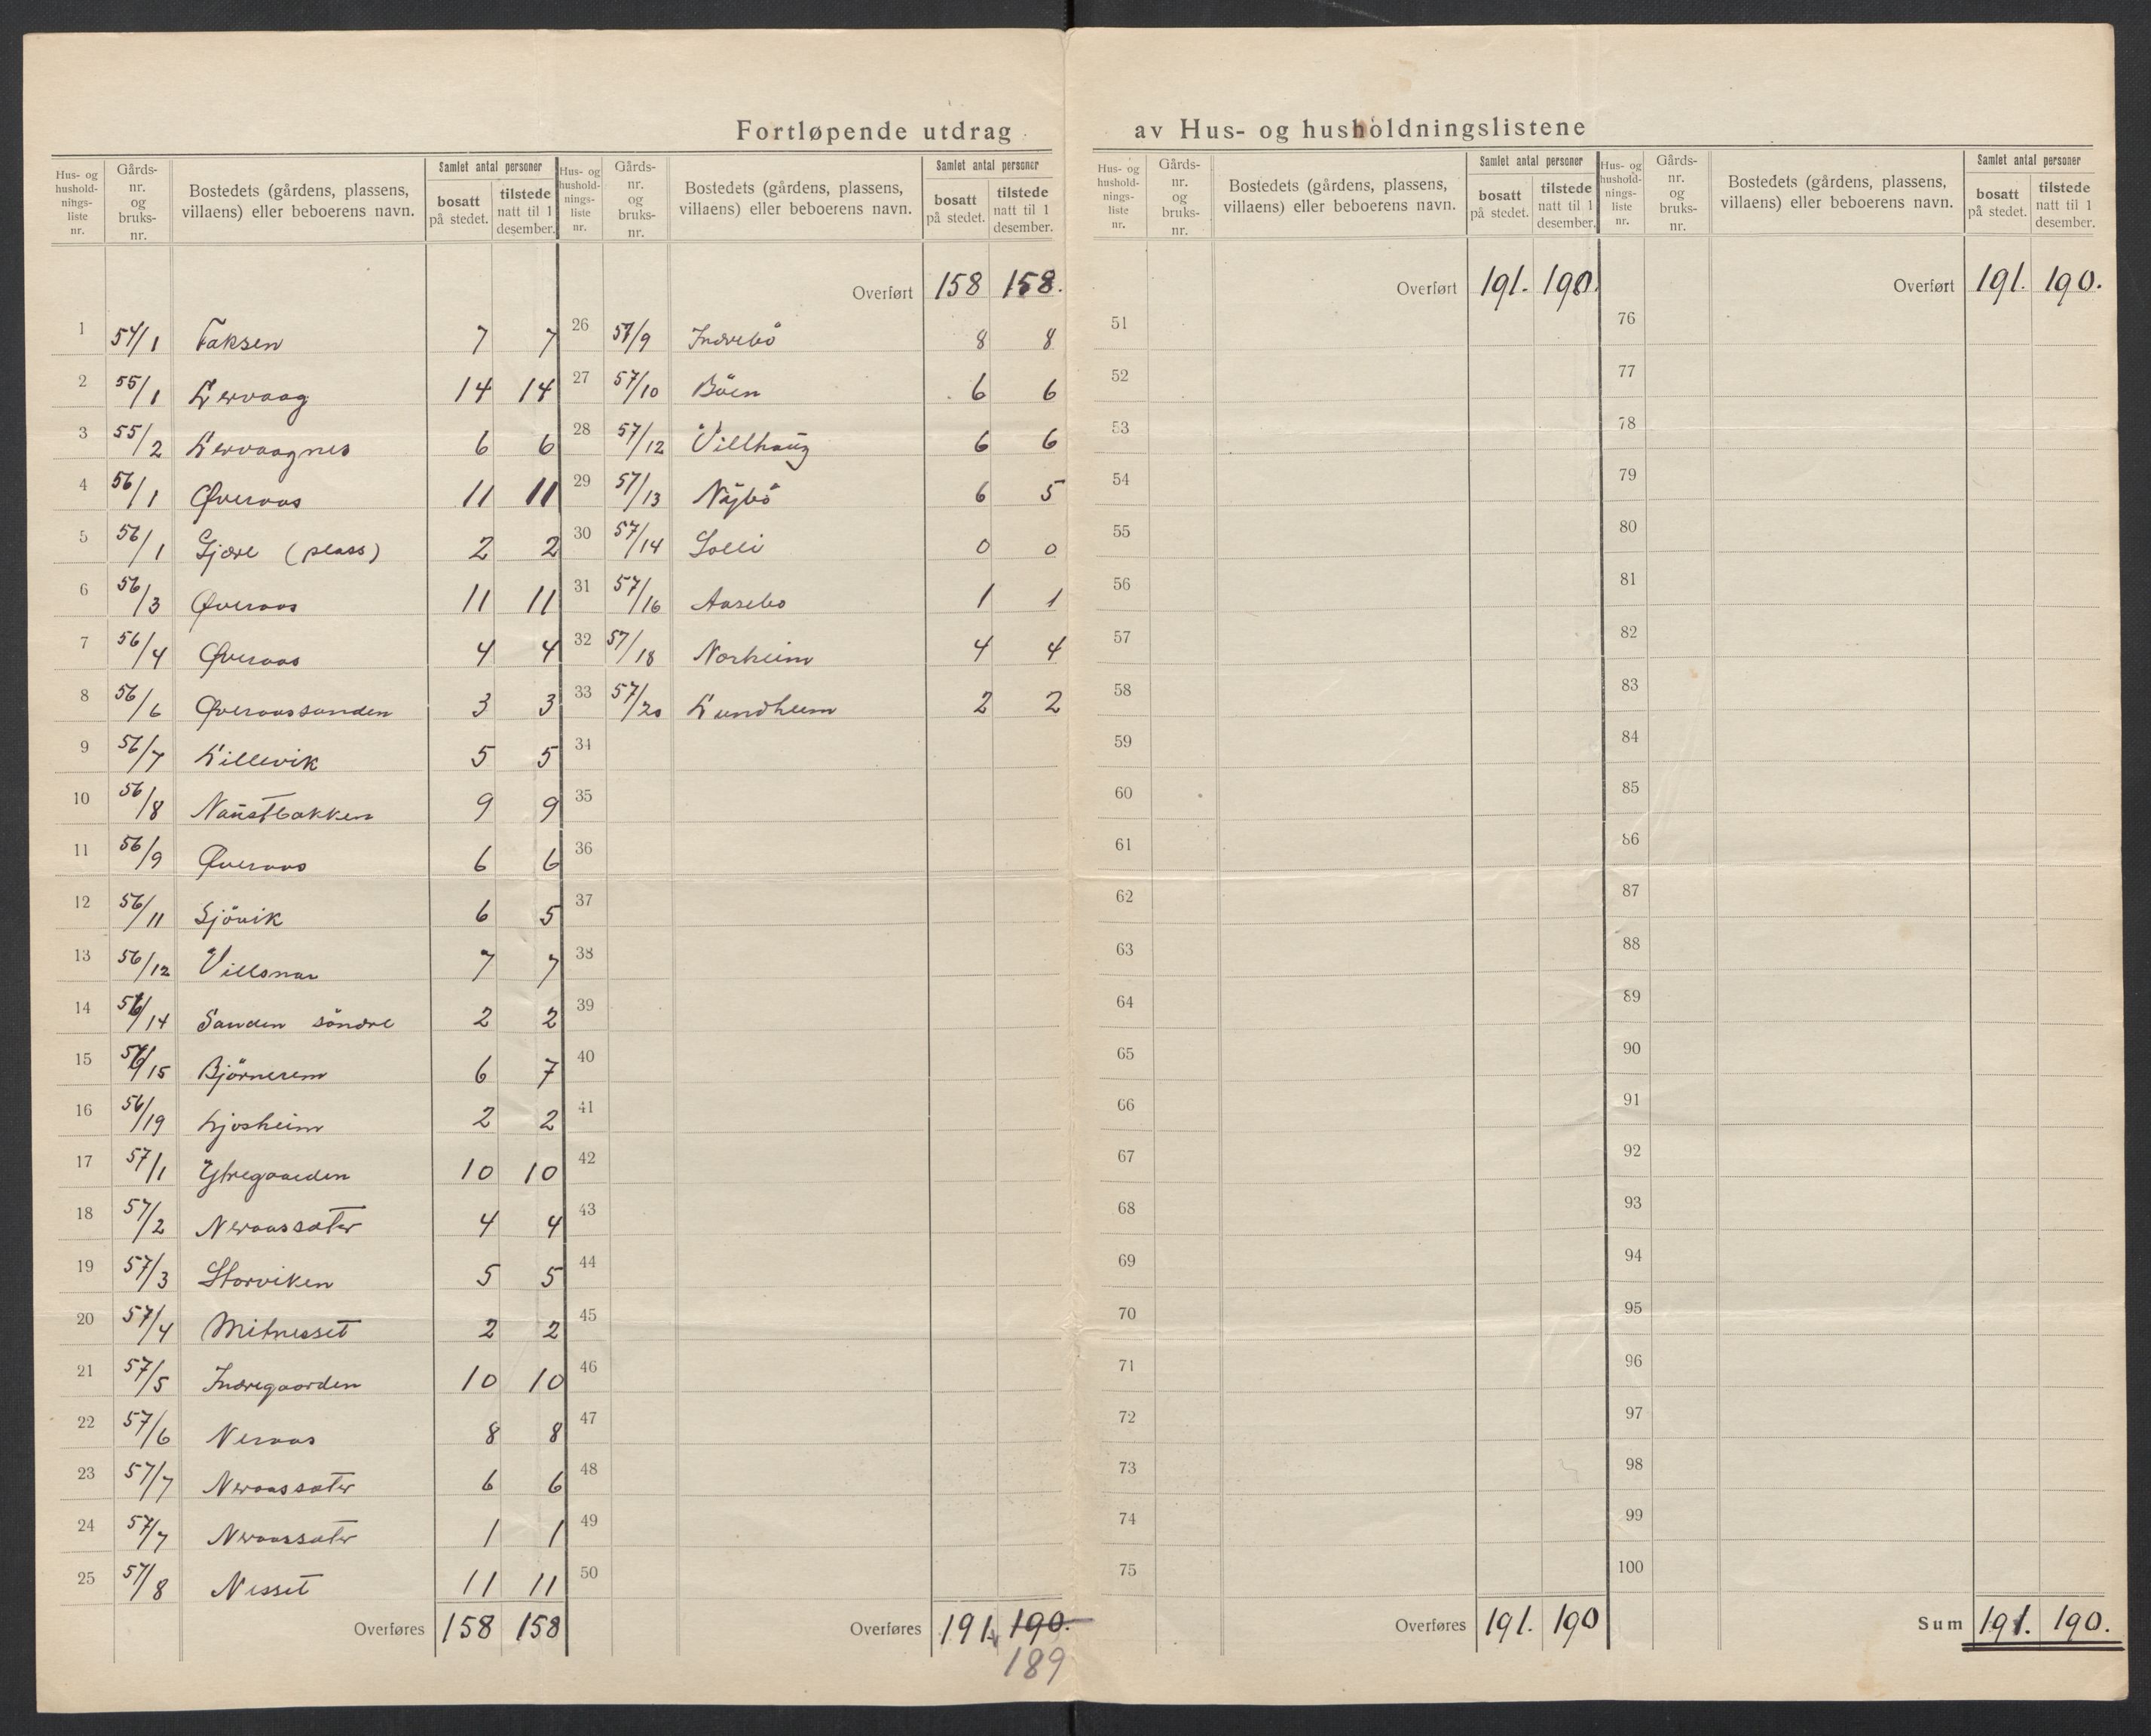 Fortløpende utdrag av Hus- og husholdningslistene
Hus- og hushold-nings-liste nr. | Gårds-nr. og bruks-nr. | Bostedets (gårdens, plassens, villaens) eller beboerens navn. | Samlet antal personer | bosatt på stedet. | tilstede natt til 1 desember.
1 54/1 Faksen 7 7
2 55/1 Lervaag 14 14
3 55/2 Lervaagnes 6 6
4 56/1 Øveraas 11 11
5 56/1 Gjære (plass) 2 2
6 56/3 Øveraas 11 11
7 56/4 Øveraas 4 4
8 56/6 Øveraassanden 3 3
9 56/7 Lillevik 5 5
10 56/8 Naustbakken 9 9
11 56/9 Øveraas 6 6
12 56/11 Sjövik 6 5
13 56/12 Villsnar 7 7
14 56/14 Sanden söndre 2 2
15 56/15 Björnerem 6 7
16 56/19 Ljosheim 2 2
17 57/1 Ytregaarden 10 10
18 57/2 Neraassæter 4 4
19 57/3 Storviken 5 5
20 57/4 Mitnesset 2 2
21 57/5 Indregaarden 10 10
22 57/6 Neraas 8 8
23 57/7 Neraassæter 6 6
24 57/7 Neraassæter 1 1
25 57/8 Nesset 11 11
Overføres 158 158
Hus- og hushold-nings-liste nr. | Gårds-nr. og bruks-nr. | Bostedets (gårdens, plassens, villaens) eller beboerens navn. | Samlet antal personer | bosatt på stedet. | tilstede natt til 1 desember.
Overført 158 158.
26 57/9 Indrebö 8 8
27 57/10 Böen 6 6
28 57/12 Villhaug 6 6
29 57/13 Nybö 6 5
30 57/14 Solli 0 0
31 57/16 Aasebo 1 1
32 57/18 Norheim 4 4
33 57/20 Lundheim 2 2
34
35
36
37
38
39
40
41
42
43
44
45
46
47
48
49
50
Overføres 191. 190.
189
Hus- og hushold-nings-liste nr. | Gårds-nr. og bruks-nr. | Bostedets (gårdens, plassens, villaens) eller beboerens navn. | Samlet antal personer | bosatt på stedet. | tilstede natt til 1 desember.
Overført 191. 190.
51
52
53
54
55
56
57
58
59
60
61
62
63
64
65
66
67
68
69
70
71
72
73
74
75
Overføres 191. 190
Hus- og hushold-nings-liste nr. | Gårds-nr. og bruks-nr. | Bostedets (gårdens, plassens, villaens) eller beboerens navn. | Samlet antal personer | bosatt på stedet. | tilstede natt til 1 desember.
Overført 191. 190.
76
77
78
79
80
81
82
83
84
85
86
87
88
89
90
91
92
93
94
95
96
97
98
99
100
Sum 191. 190.